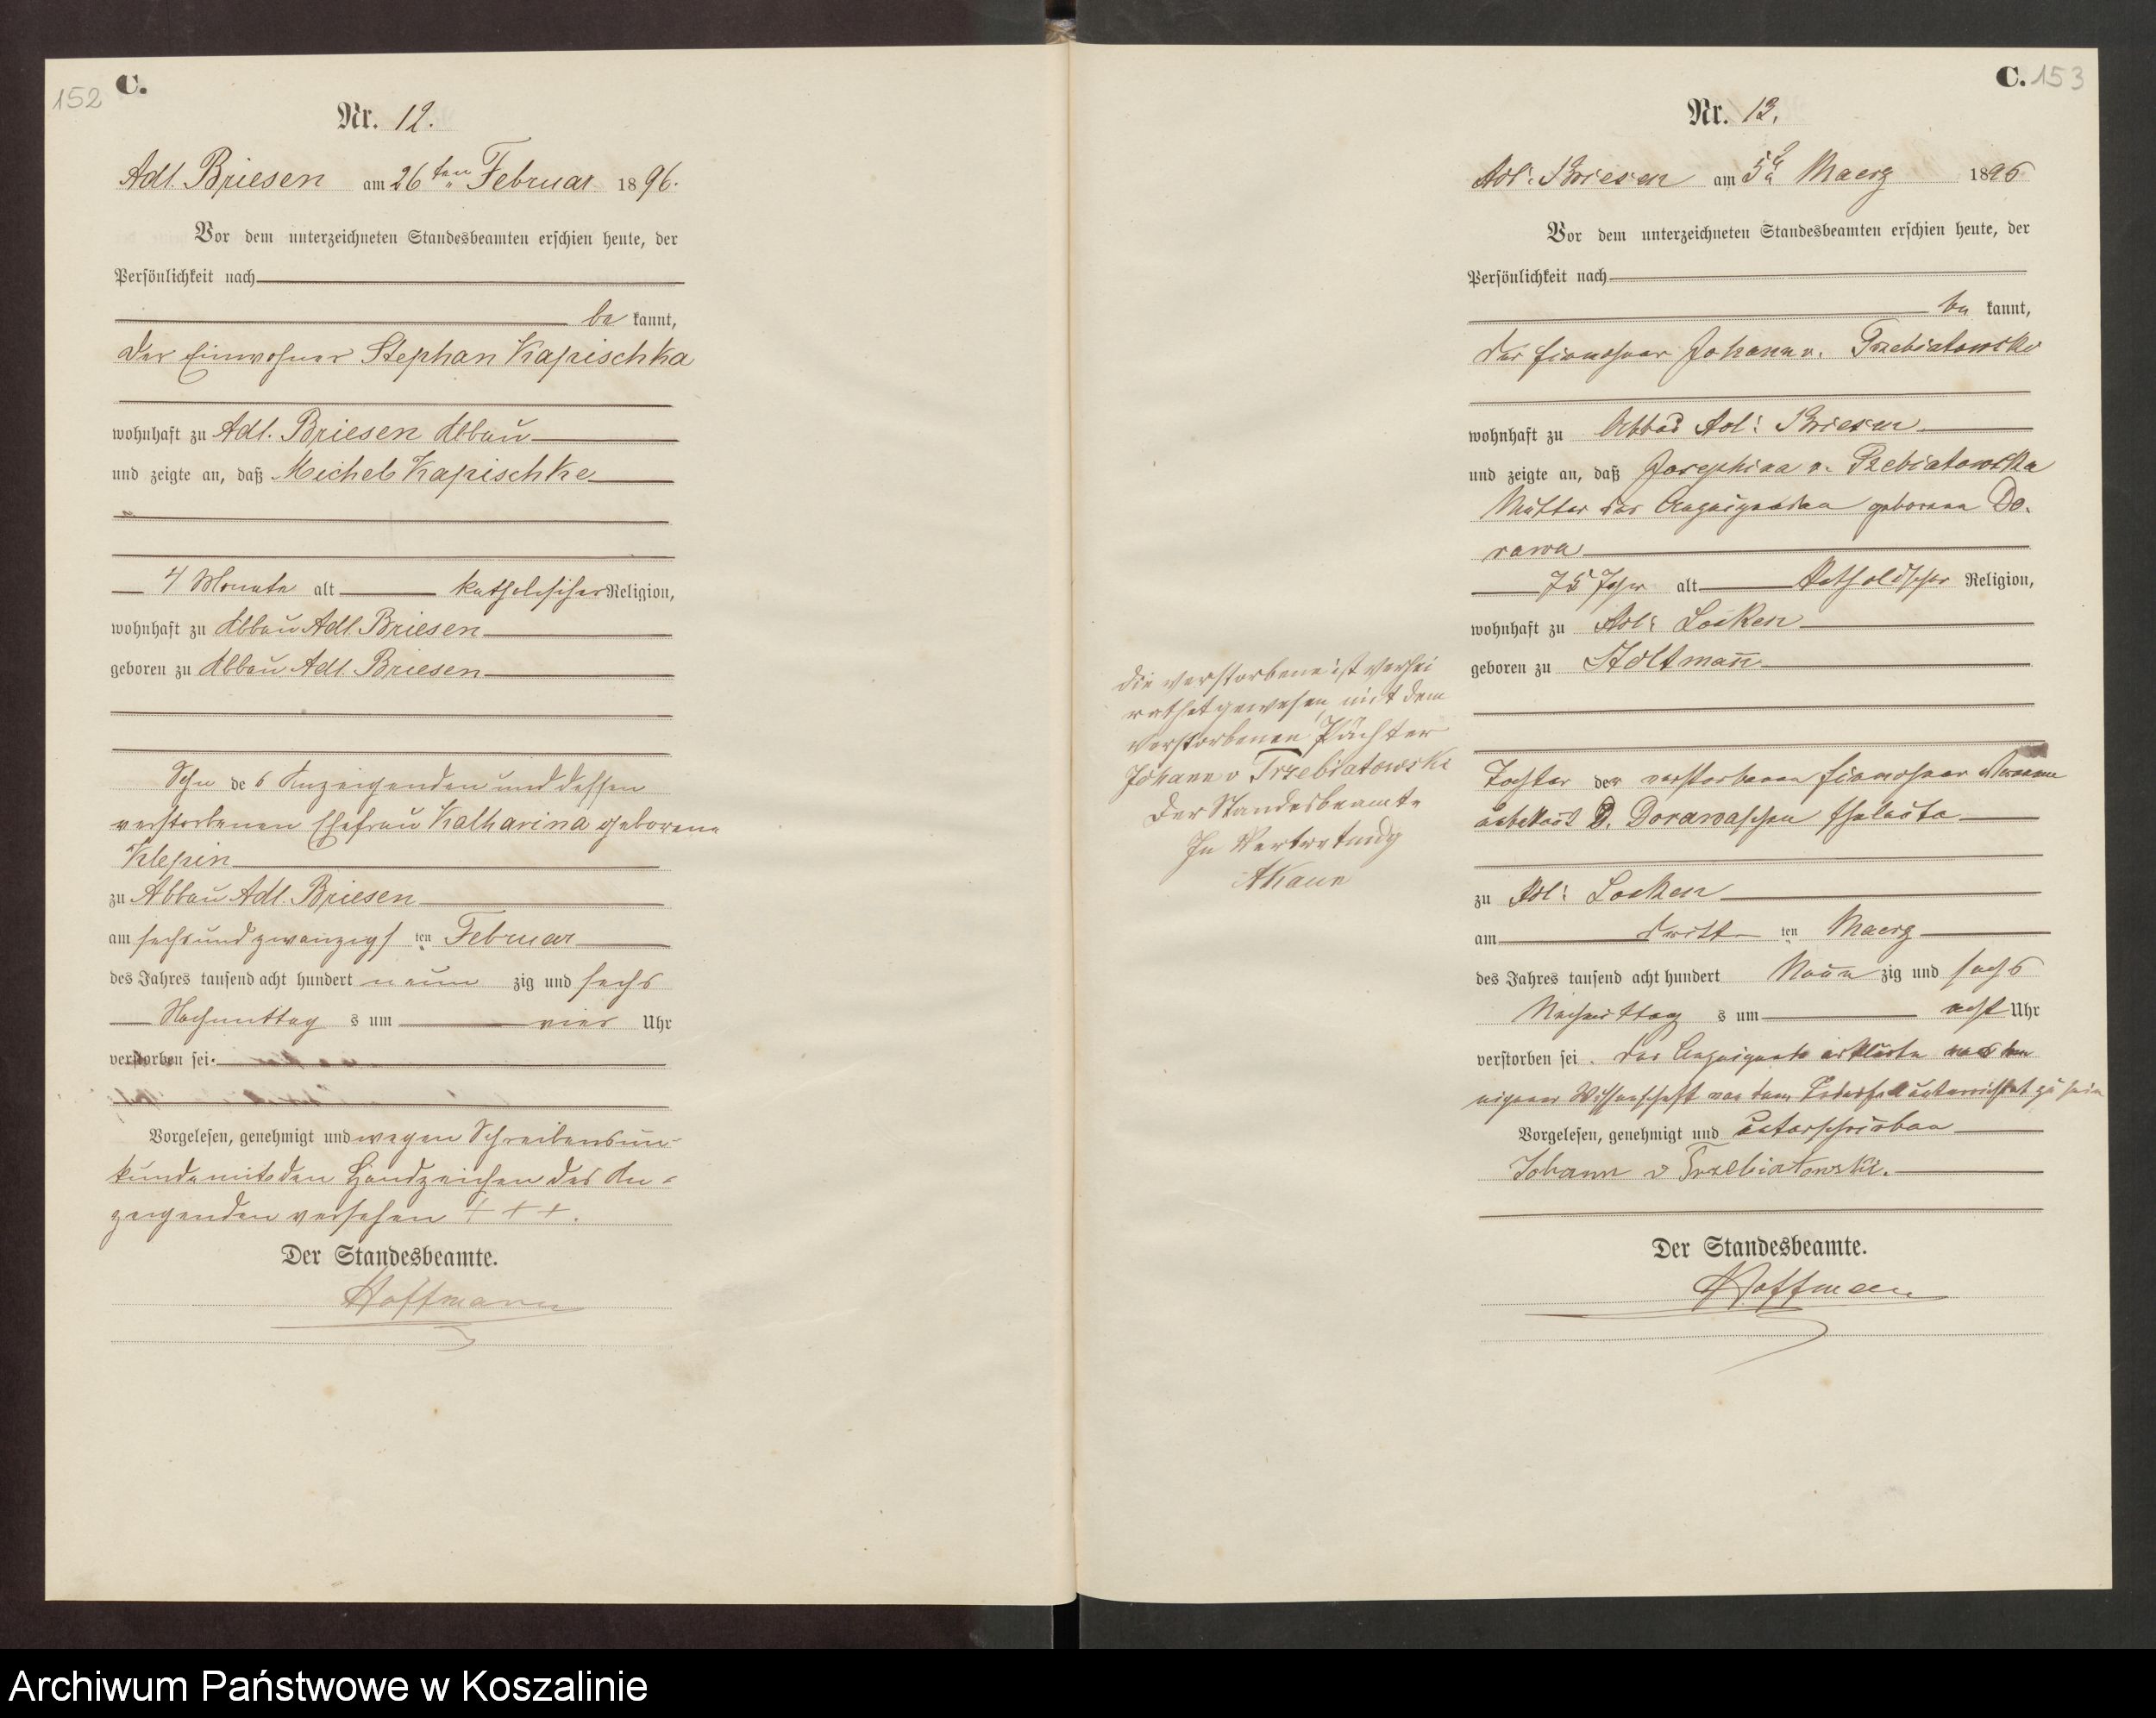 152 C.
Nr. 12.
Adl. Briesen am 26 ten Februar 1896.
Vor dem unterzeichneten Standesbeamten erschien heute, der
Persönlichkeit nach
be kannt,
der Einwohner Stephan Kapischka
wohnhaft zu Adl. Briesen Abbau
und zeigte an, daß Michel Kapischke
4 Monate alt katholischer Religion,
wohnhaft zu Abbau Adl. Briesen
geboren zu Abbau Adl. Briesen
Sohn des Anzeigenden und dessen
verstorbenen Ehefrau Katharina geborene
Klepin
zu Abbau Adl. Briesen
am sechsundzwanzigs ten Februar
des Jahres tausend acht hundert neun zig und sechs
Nachmittag s um vier Uhr
verstorben sei.
Vorgelesen, genehmigt und wegen Schreibensun-
kunde mit den Handzeichen des An-
zeigenden versehen + + +.
Der Standesbeamte.
Hoffmann
C. 153
Nr. 13.
Adl: Briesen am 5 Maerz 1896
Vor dem unterzeichneten Standesbeamten erschien heute, der
Persönlichkeit nach
be kannt,
der Einwohner Johann v. Trzebiatowski
wohnhaft zu Abbau Adl: Briesen
und zeigte an, daß Josephina v. Tzebiatowska
Mutter des Anzeigenden geborene Do-
rawa
75 Jahr alt katholischer Religion,
wohnhaft zu Adl: Locken
geboren zu Stoltmann
die verstorbene ist verhei
rathet gewesen mit dem
verstorbenen Pächter
Johann v Trzebiatowski
Der Standesbeamte
In Vertretung
Tochter der verstorbenen Einwohner
unbekannt D. Dorawaschen Eheleute
zu Adl: Locken
am dritt ten Maerz
des Jahres tausend acht hundert Neun zig und sechs
Nachmittag s um acht Uhr
verstorben sei. Der Anzeigende erklärte aus
eigener Wissenschaft von dem Todesfall unterrichtet zu sein
Vorgelesen, genehmigt und unterschrieben
Johann v Trzebiatowski.
Der Standesbeamte.
Hoffmann
Archiwum Państwowe w Koszalinie